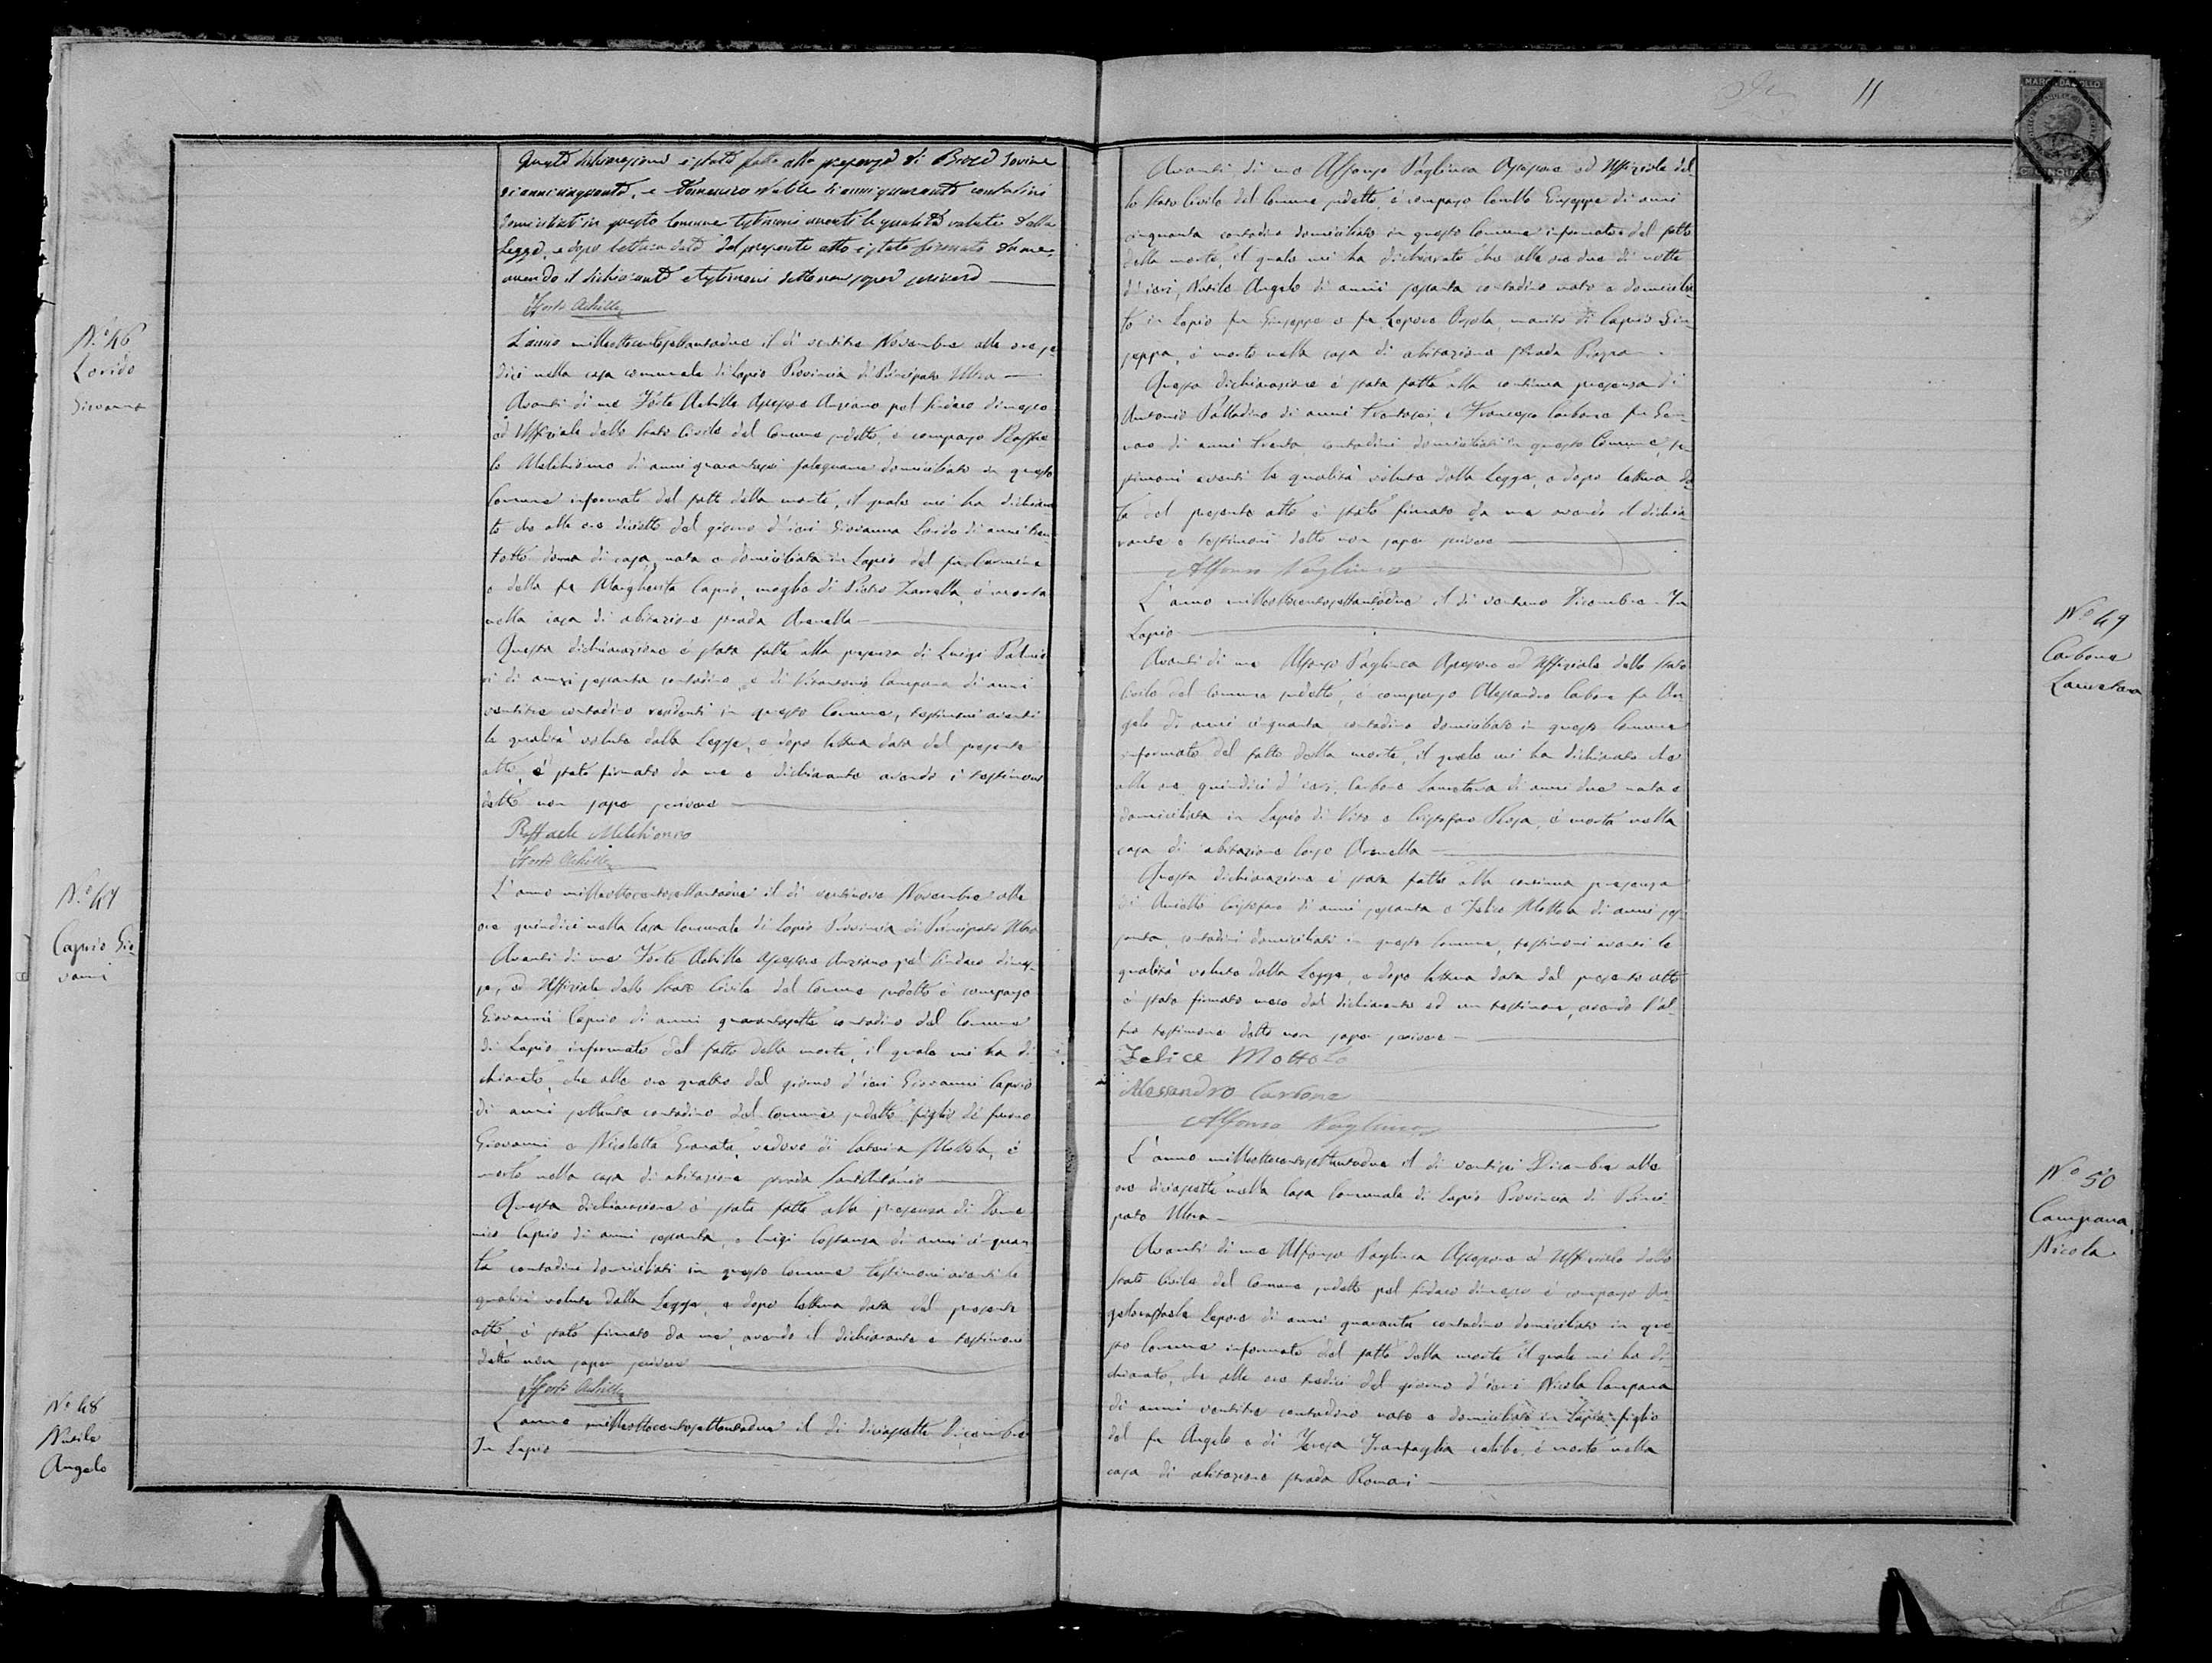 Questa dichiarazione è stata fatta alla presenza di Iovine
di anni cinquanta, e Domenico Nutile di anni quaranta contadini
domiciliati in questo Comune testimoni aventi le qualità volute dalla
Legge, e dopo lettura data del presente atto è stato firmato da me,
avendo il dichiarante e testimoni detto non saper scrivere
Forte Achille
Nº 46
Lovido
Giovanna
L'anno milleottocentosettantadue il dì ventitre Novembre alle ore se
dici nella casa comunale di Lapio Provincia di Principato Ultra
Avanti di me Forte Achille Assessore Anziano pel Sindaco dimesso
ed Uffiziale dello Stato Civile del Comune sudetto, è comparso Raffae
le Melchionno di anni quarantasei falegname domiciliato in questo
Comune informato del fatto della morte, il quale mi ha dichiara
to che alle ore diciotto del giorno d'ieri Giovanna Lovido di anni tren
totto donna di casa, nata e domiciliata in Lapio del fu Carmine
e della fu Margherita Caprio, moglie di Pietro Zarrella, è morta
nella casa di abitazione strada Arenella
Questa dichiarazione è stata fatta alla presenza di Luigi
di anni sessanta contadino, e di Vitantonio Campana di anni
ventitre contadino residenti in questo Comune, testimoni aventi
le qualità volute dalla Legge, e dopo lettura data del presente
atto, è stato firmato da me e dichiarante avendo i testimoni
detto non saper scrivere
Raffaele Melchionno
Forte Achille
Nº 47
Caprio Gio
vanni
L'anno milleottocentosettantadue il dì ventinove Novembre alle
ore quindici nella Casa Comunale di Lapio Provincia di Principato Ultra
Avanti di me Forte Achille Assessore Anziano pel Sindaco dimes
so, ed Uffiziale dello Stato Civile del Comune sudetto è comparso
Giovanni Caprio di anni quarantasette contadino del Comune
di Lapio informato del fatto della morte, il quale mi ha di
chiarato, che alle ore quattro del giorno d'ieri Giovanni Caprio
di anni settanta contadino del comune sudetto figlio di furono
Giovanni e Nicoletta Granata, vedovo di Caterina Mottola, è
morto nella casa di abitazione strada Santantonio
Questa dichiarazione è stata fatta alla presenza di Dome
nico Caprio di anni sessanta, e Luigi Costanza di anni cinquan
ta contadini domiciliati in questo Comune testimoni aventi le
qualità volute dalla Legge, e dopo lettura data del presente
atto, è stato firmato da me, avendo il dichiarante e testimoni
detto non saper scrivere
Forte Achille
Nº 48
Nutile
Angelo
L'anno milleottocentosettantadue il dì diciasette Dicembre
In Lapio
11
MARCA DA BOLLO
CINQUANTA
Avanti di me Alfonso Pagliuca Assessore ed Uffiziale del
lo Stato Civile del Comune sudetto, è comparso Giuseppe di anni
cinquanta contadino domiciliato in questo Comune informato del fatto
della morte, il quale mi ha dichiarato che alle ore due di notte
di ieri, Nutile Angelo di anni sessanta contadino nato e domicilia
to in Lapio fu Giuseppe e fu Lepore Orsola, marito di Caprio Giu
seppa, è morto nella casa di abitazione strada Piazza
Questa dichiarazione è stata fatta alla continua presenza di
Antonio Palladino di anni trentasei e Francesco Carbone fu Gen
naro di anni trenta, contadini domiciliati in questo Comune, te
stimoni aventi le qualità volute dalla Legge, e dopo lettura da
ta del presente atto è stato firmato da me avendo il dichia
rante e testimoni detto non saper scrivere
Alfonso Pagliuca
Nº 49
Carbone
Lauretana
L'anno milleottocentosettantadue il dì ventuno Dicembre In
Lapio
Avanti di me Alfonso Pagliuca Assessore ed Uffiziale dello Stato
Civile del Comune sudetto, è comparso Alessandro Carbone fu An
gelo di anni cinquanta contadino domiciliato in questo Comune
informato del fatto della morte, il quale mi ha dichiarato che
alle ore quindici d'ieri, Carbone Lauretana di anni due nata e
domiciliata in Lapio di Vito e Cristofaro Rosa, è morta nella
casa di abitazione largo Arenella
Questa dichiarazione è stata fatta alla continua presenza
di Aniello Cristofaro di anni sessanta e Felice Mottola di anni ses
santa, contadini domiciliati in questo Comune, testimoni aventi le
qualità volute dalla Legge, e dopo lettura data del presente atto
è stato firmato meco dal dichiarante ed un testimone, avendo l'al
tro testimone detto non saper scrivere
Felice Mottola
Alessandro Carbone
Alfonso Pagliuca
Nº 50
Campana
Nicola
L'anno milleottocentosettantadue il dì ventisei Dicembre alle
ore diciasette nella Casa Comunale di Lapio Provincia di Princi
pato Ultra
Avanti di me Alfonso Pagliuca Assessore ed Uffiziale dello
Stato Civile del Comune sudetto pel Sindaco dimesso è comparso An
geloraffaele Lepore di anni quaranta contadino domiciliato in que
sto Comune informato del fatto della morte il quale mi ha di
chiarato, che alle ore tredici del giorno d'ieri Nicola Campana
di anni ventitre contadino nato e domiciliato in Lapio figlio
del fu Angelo e di Teresa Trantaglia celibe, è morto nella
casa di abitazione strada Romani